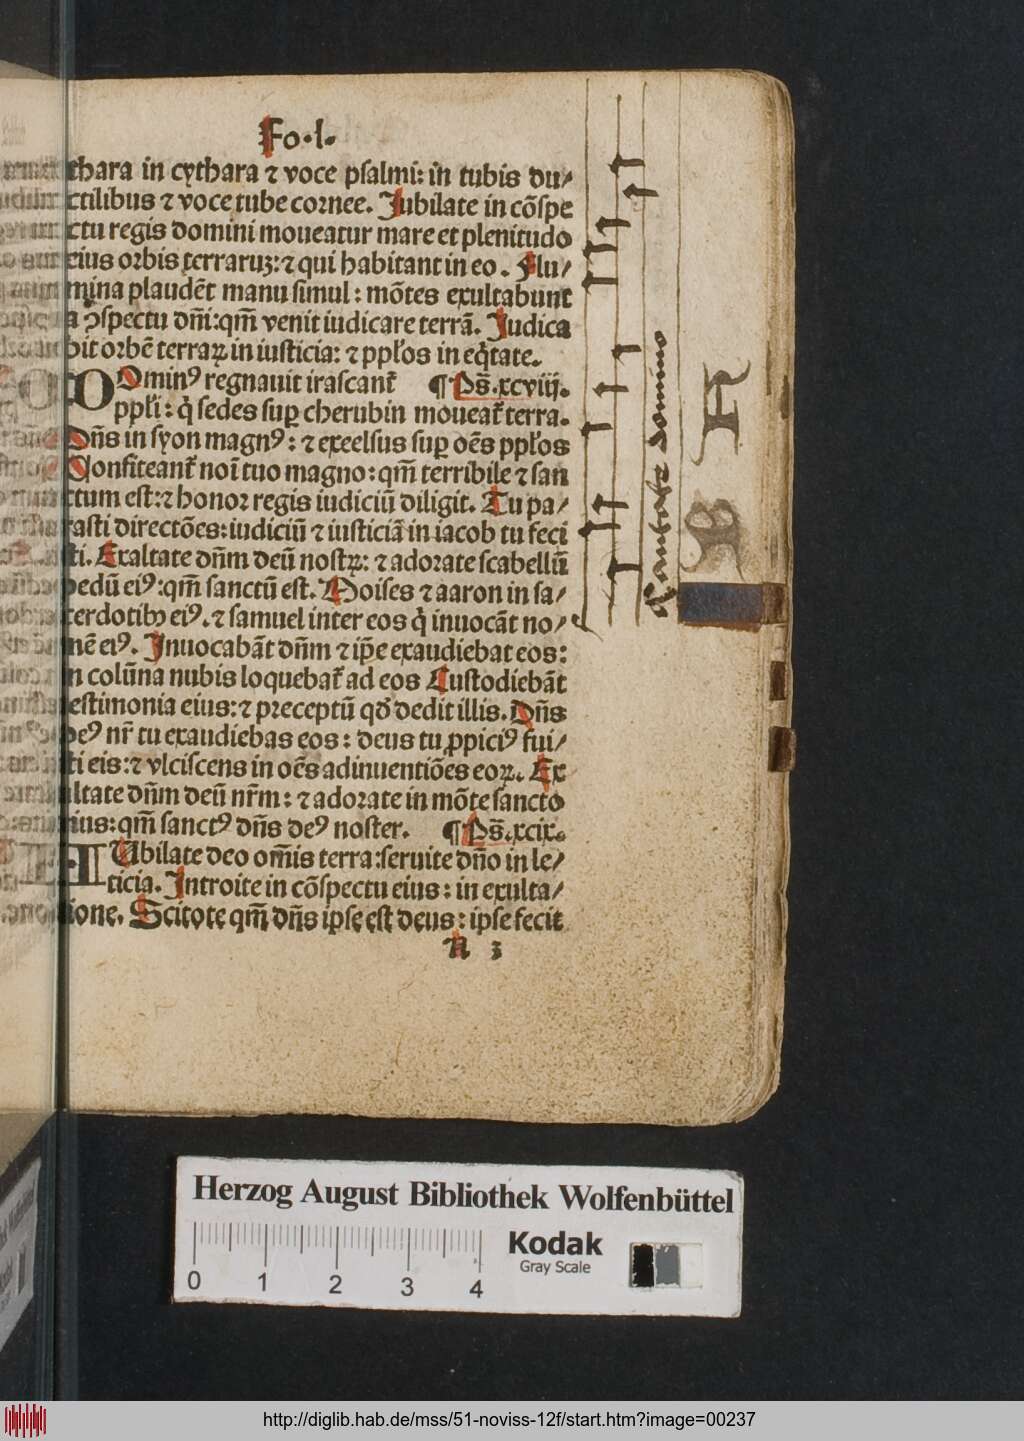 Fo.l.
thara in cythara ⁊ voce psalmi: in tubis du/
ctilibus ⁊ voce tube cornee. Jubilate in cõspe
ctu regis domini moueatur mare et plenitudo
eius orbis terraruꝫ: ⁊ qui habitant in eo. Flu/
mina plaudẽt manu simul: mõtes exultabunt
a ꝯspectu dñi: qm̃ venit iudicare terrã. Judica
bit orbẽ terraꝝ in iusticia: ⁊ pplo̅s in eq̇tate.
DOminꝰ regnauit irascant᷑ ¶ Ps̃. xcviij.
ppl̅i: q̇ sedes suꝑ cherubin moueat᷑ terra.
Dñs in syon magnꝰ: ⁊ excelsus suꝑ oẽs pplo̅s
Confiteant᷑ noĩ tuo magno: qm̃ terribile ⁊ san
ctum est: ⁊ honor regis iudiciũ diligit. Tu pa/
rasti directões: iudiciũ ⁊ iusticiã in iacob tu feci
sti. Exaltate dñm deũ nostꝝ: ⁊ adorate scabellũ
pedũ eiꝰ: qm̃ sanctũ est. Moises ⁊ aaron in sa/
cerdotibꝫ eiꝰ. ⁊ samuel inter eos q̇ inuocãt no/
mẽ eiꝰ. Inuocabãt dñm ⁊ ip̃e exaudiebat eos:
in colũna nubis loquebat᷑ ad eos Custodiebãt
testimonia eius: ⁊ preceptũ qđ dedit illis. Dñs
deꝰ nr̃ tu exaudiebas eos: deus tu ꝓpiciꝰ fui/
sti eis: ⁊ vlciscens in oẽs adinuentiões eoꝝ. Ex
altate dñm deũ nr̃m: ⁊ adorate in mõte sancto
eius: qm̃ sanctꝰ dñs deꝰ noster. ¶ Ps̃. xcix.
IUbilate deo om̃is terra: seruite dño in le/
ticia. Introite in cõspectu eius: in exulta/
tione. Scitote qm̃ dñs ipse est deus: ipse fecit
n 3
Cantate domino
Herzog August Bibliothek Wolfenbüttel
Kodak
Gray Scale
0 1 2 3 4
http://diglib.hab.de/mss/51-noviss-12f/start.htm?image=00237